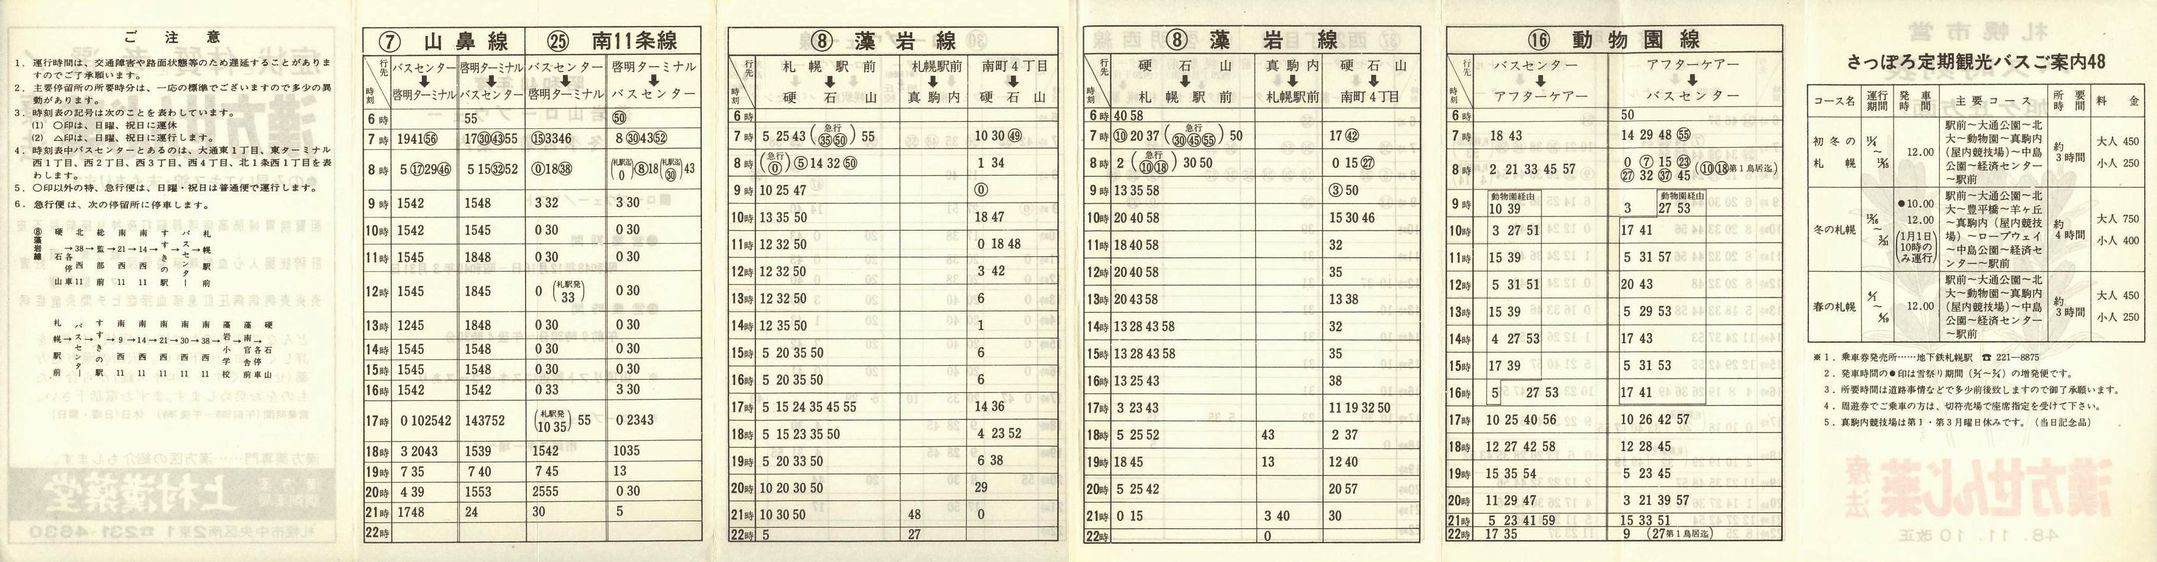 ご注意
1．運行時間は、交通障害や路面状態等のため遅延することがありま
すのでご了承願います。
2．主要停留所の所要時分は、一応の標準でございますので多少の異
動があります。
3．時刻表の記号は次のことを表わしています。
(1) ○印は、日曜、祝日に運休
(2) △印は、日曜、祝日に運行します。
4．時刻表中バスセンターとあるのは、大通東1丁目、東ターミナル
西1丁目、西2丁目、西3丁目、西4丁目、北1条西1丁目を表
わします。
5．○印以外の特、急行便は、日曜・祝日は普通便で運行します。
6．急行便は、次の停留所に停車します。
⑧藻岩線
⑦ 山鼻線 ㉕ 南11条線
行先 時刻 バスセンター↓啓明ターミナル 啓明ターミナル↓バスセンター バスセンター↓啓明ターミナル 啓明ターミナル↓バスセンター
6時 55 ㊿
7時 1941(56) 17㉚㊸55 ⑮3346 8 ㉚43(52)
8時 5 ⑰29㊻ 5 15㉜52 ⓪18㊳ (札駅迄 0) ⑧18 (札駅迄 ㉚) 43
9時 1542 1548 3 32 3 30
10時 1542 1545 0 30 0 30
11時 1545 1848 0 30 0 30
12時 1545 1845 0 (札駅発 33) 0 30
13時 1245 1848 0 30 0 30
14時 1545 1548 0 30 0 30
15時 1545 1548 0 30 0 30
16時 1542 1542 0 33 3 30
17時 0 102542 143752 (札駅発 10 35) 55 0 2343
18時 3 2043 1539 1542 1035
19時 7 35 7 40 7 45 13
20時 4 39 1553 2555 0 30
21時 1748 24 30 5
22時
⑧ 藻岩線
行先 時刻 札幌駅前↓硬石山 札幌駅前↓真駒内 南町4丁目↓硬石山
6時
7時 5 25 43 (急行 ㉟㊿) 55 10 30 ㊾
8時 (急行 ⓪) ⑤ 14 32 ㊿ 1 34
9時 10 25 47 ⓪
10時 13 35 50 18 47
11時 12 32 50 0 18 48
12時 12 32 50 3 42
13時 12 32 50 6
14時 12 35 50 1
15時 5 20 35 50 6
16時 5 20 35 50 6
17時 5 15 24 35 45 55 14 36
18時 5 15 23 35 50 4 23 52
19時 5 20 33 50 6 38
20時 10 20 30 50 29
21時 10 30 50 48 0
22時 5 27
⑧ 藻岩線
行先 時刻 硬石山↓札幌駅前 真駒内↓札幌駅前 硬石山↓南町4丁目
6時 40 58
7時 ⑩ 20 37 (急行 ㉚㊺(55)) 50 17 ㊷
8時 2 (急行 ⑩⑱) 30 50 0 15 ㉗
9時 13 35 58 ③ 50
10時 20 40 58 15 30 46
11時 18 40 58 32
12時 20 40 58 35
13時 20 43 58 13 38
14時 13 28 43 58 32
15時 13 28 43 58 35
16時 13 25 43 38
17時 3 23 43 11 19 32 50
18時 5 25 52 43 2 37
19時 18 45 13 12 40
20時 5 25 42 20 57
21時 0 15 3 40 30
22時 0
⑯ 動物園線
行先 時刻 バスセンター↓アフターケアー アフターケアー↓バスセンター
6時 50
7時 18 43 14 29 48 (55)
8時 2 21 33 45 57 0 ⑦ 15 ㉓ ㉗ 32 ㊲ 45 (⑩⑱第1鳥居迄)
9時 動物園経由 10 39 3 動物園経由 27 53
10時 3 27 51 17 41
11時 15 39 5 31 57
12時 5 31 51 20 43
13時 15 39 5 29 53
14時 4 27 53 17 43
15時 17 39 5 31 53
16時 5 27 53 17 41
17時 10 25 40 56 10 26 42 57
18時 12 27 42 58 12 28 45
19時 15 35 54 5 23 45
20時 11 29 47 3 21 39 57
21時 5 23 41 59 15 33 51
22時 17 35 9 (27第1鳥居迄)
さっぽろ定期観光バスご案内48
コース名 運行期間 発車時間 主要コース 所要時間 料金
初冬の札幌 12.00 駅前～大通公園～北大～動物園～真駒内(屋内競技場)～中島公園～経済センター～駅前 約3時間 大人 450 小人 250
冬の札幌 ●10.00 12.00 (1月1日10時のみ運行) 駅前～大通公園～北大～豊平橋～羊ヶ丘～真駒内(屋内競技場)～ロープウェイ～中島公園～経済センター～駅前 約4時間 大人 750 小人 400
春の札幌 12.00 駅前～大通公園～北大～動物園～真駒内(屋内競技場)～中島公園～経済センター～駅前 約3時間 大人 450 小人 250
※1．乗車券発売所……地下鉄札幌駅 ☎ 221―8875
2．発車時間の●印は雪祭り期間の増発便です。
3．所要時間は道路事情などで多少前後致しますので御了承願います。
4．周遊券でご乗車の方は、切符売場で座席指定を受けて下さい。
5．真駒内競技場は第1・第3月曜日休みです。(当日記念品)